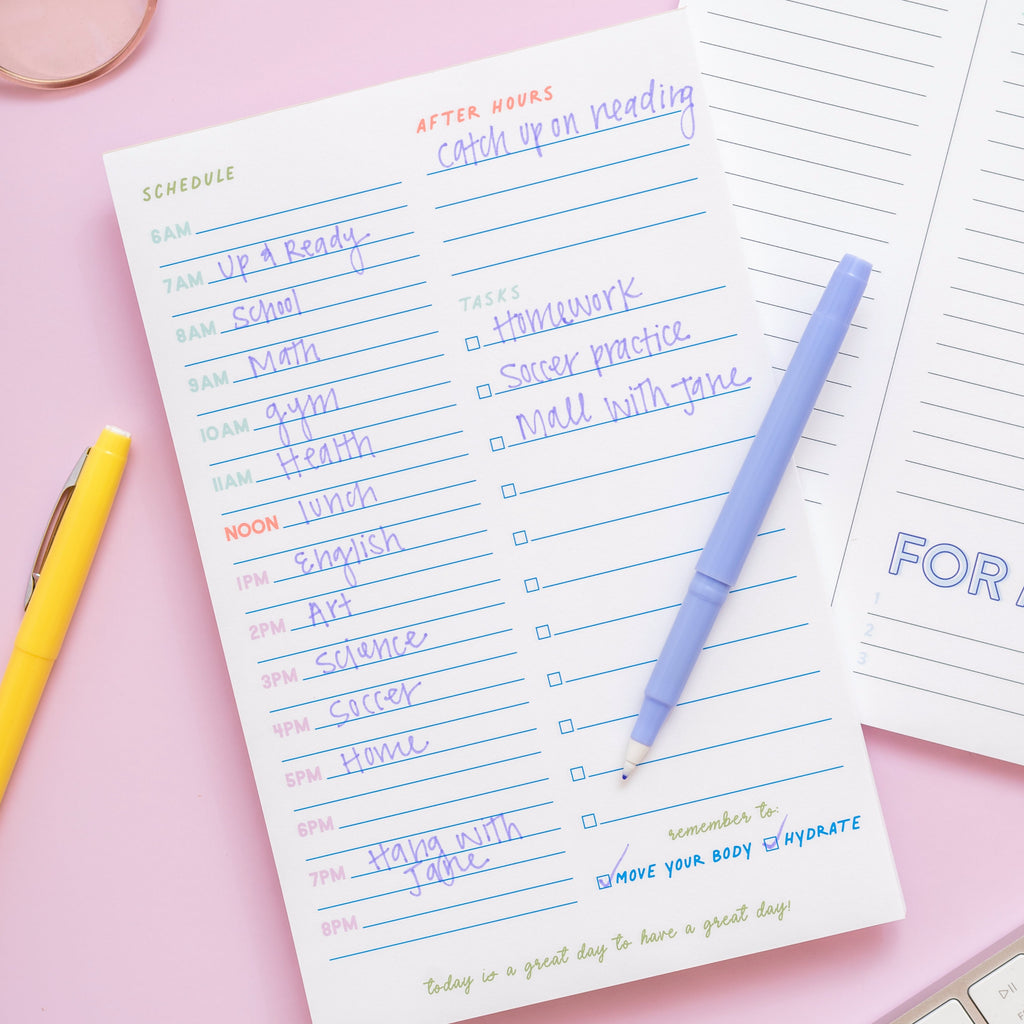 SCHEDULE
6AM
7AM Up & Ready
8AM School
9AM Math
10AM gym
11AM Health
NOON lunch
1PM English
2PM Art
3PM Science
4PM Soccer
5PM Home
6PM
7PM Hang with
Jane
8PM
AFTER HOURS
catch up on reading
TASKS
Homework
Soccer practice
Mall with Jane
remember to:
MOVE YOUR BODY HYDRATE
today is a great day to have a great day!
FOR
1
2
3